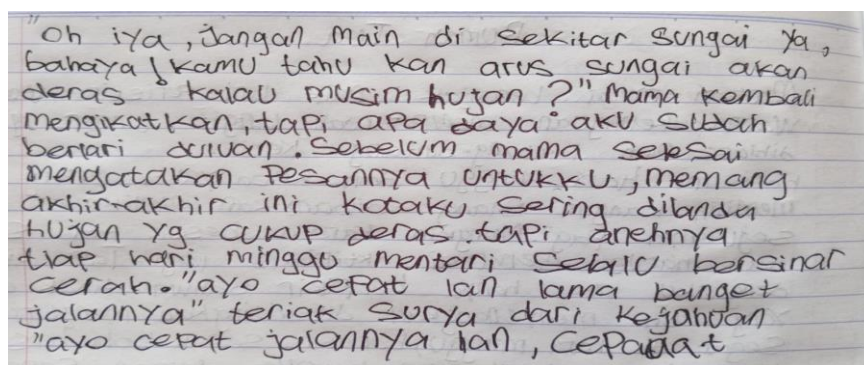 "Oh iya, Jangan main di sekitar sungai ya,
bahaya! Kamu tahu kan arus sungai akan
deras kalau musim hujan?" Mama kembali
mengikatkan, tapi apa daya aku sudah
berlari duluan. Sebelum mama selesai
mengatakan Pesannya untukku, memang
akhir-akhir ini kotaku sering dilanda
hujan yg cukup deras. tapi anehnya
tiap hari minggu mentari selalu bersinar
cerah. "ayo cepat lan lama banget
jalannya" teriak Surya dari kejahuan
"ayo cepat jalannya lan, cepaaat